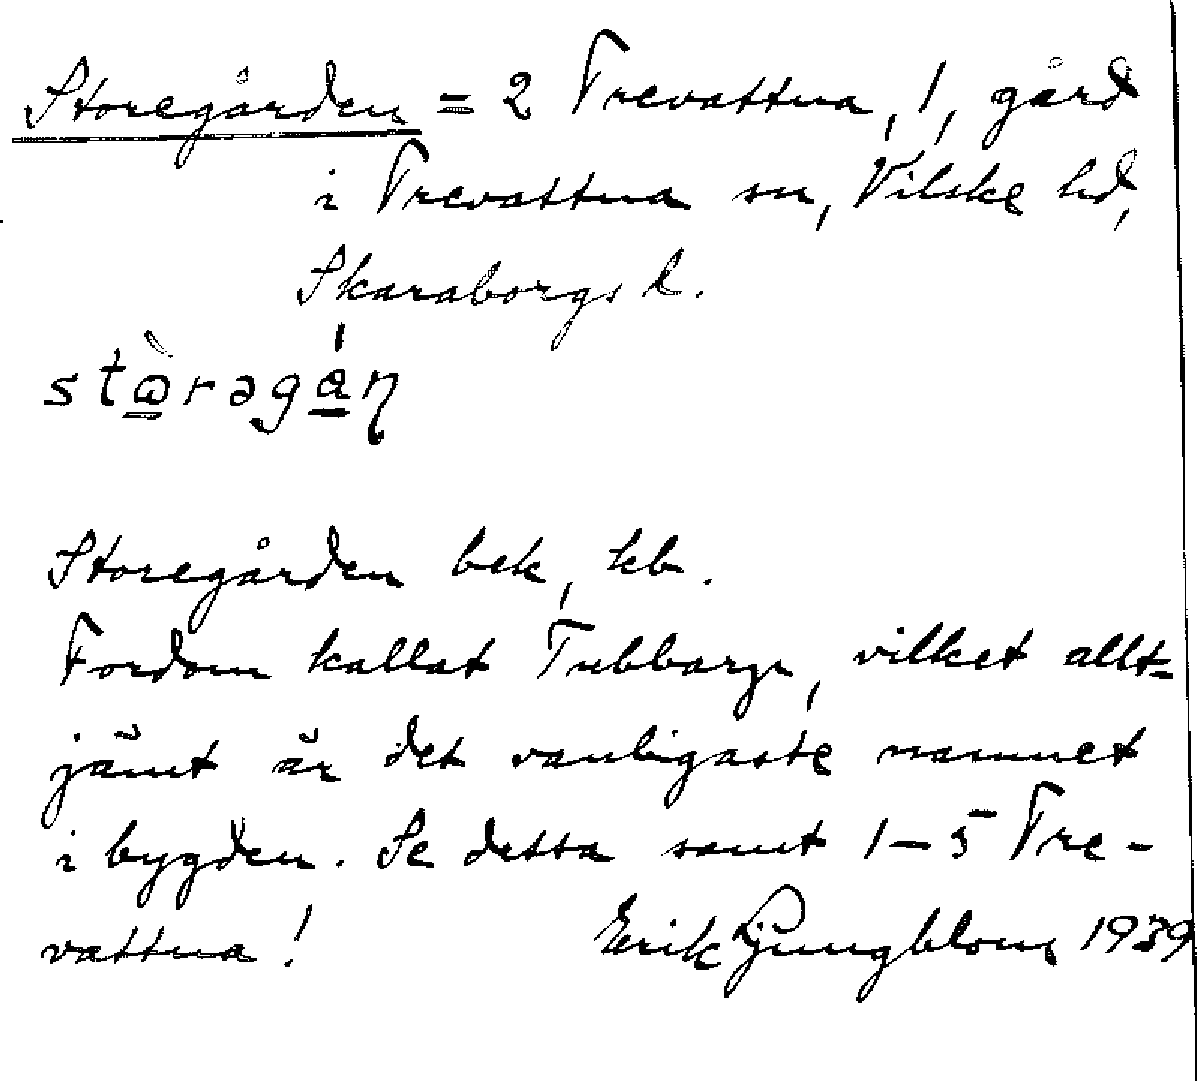 Storegården = 2 Trevattna, 1, gård
i Trevattna sn, Vilske hd,
Skaraborgs l.
stɷ̀rəgán
Storegården bek, kb.
Fordom kallat Tubbarp, vilket allt-
jämt är det vanligaste namnet
i bygden. Se dessa samt 1-5 Tre-
vattna! Erik Ljungblom 1939